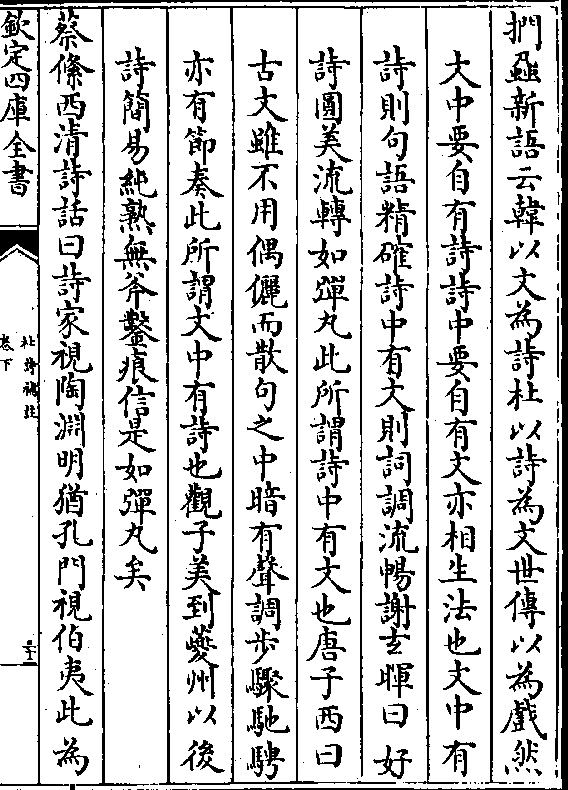 捫蝨新語云韓以文為詩杜以詩為文世傳以為戲然
文中要自有詩詩中要自有文亦相生法也文中有
詩則句語精確詩中有文則詞調流暢謝玄暉曰好
詩圓美流轉如彈丸此所謂詩中有文也唐子西曰
古文雖不用偶儷而散句之中暗有聲調步驟馳騁
亦有節奏此所謂文中有詩也觀子美到夔州以後
詩簡易純熟無斧鑿痕信是如彈丸矣
蔡絛西清詩話曰詩家視陶淵明猶孔門視伯夷此為
欽定四庫全書
卷下